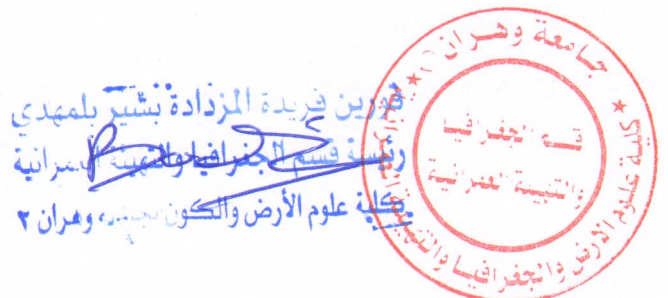 فورين فريدة المزدادة بشير بلمهدي
رئيسة قسم الجغرافيا والتهيئة العمرانية
بكلية علوم الأرض والكون وهران ٢
جامعة وهران
كلية علوم الأرض والجغرافيا والتهيئة
قسم الجغرافيا
والتهيئة العمرانية